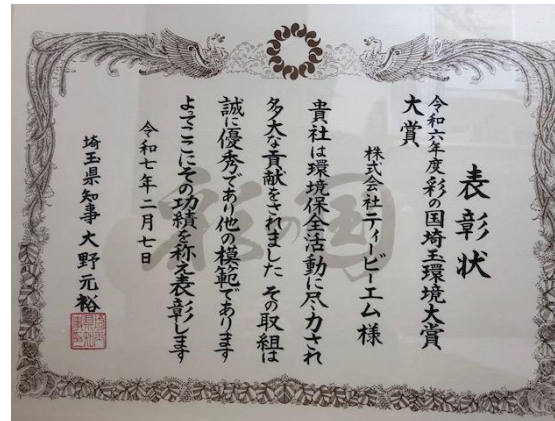 表彰状
令和六年度彩の国埼玉環境大賞
大賞
株式会社ティービーエム様
貴社は環境保全活動に尽力され
多大な貢献をされました その取組は
誠に優秀であり他の模範であります
よってここにその功績を称え表彰します
令和七年二月七日
埼玉県知事 大野元裕
埼玉県知事之印
彩の国